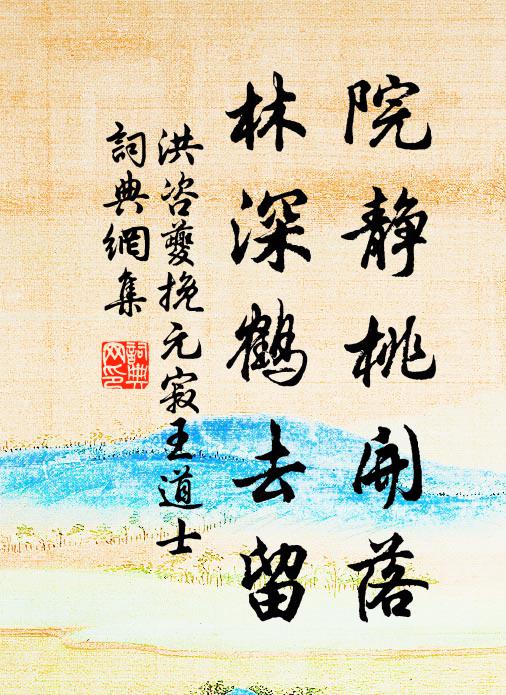 院静桃開落
林深鶴去留
洪咨夔挽元寂王道士
詞典網集
詞典网印